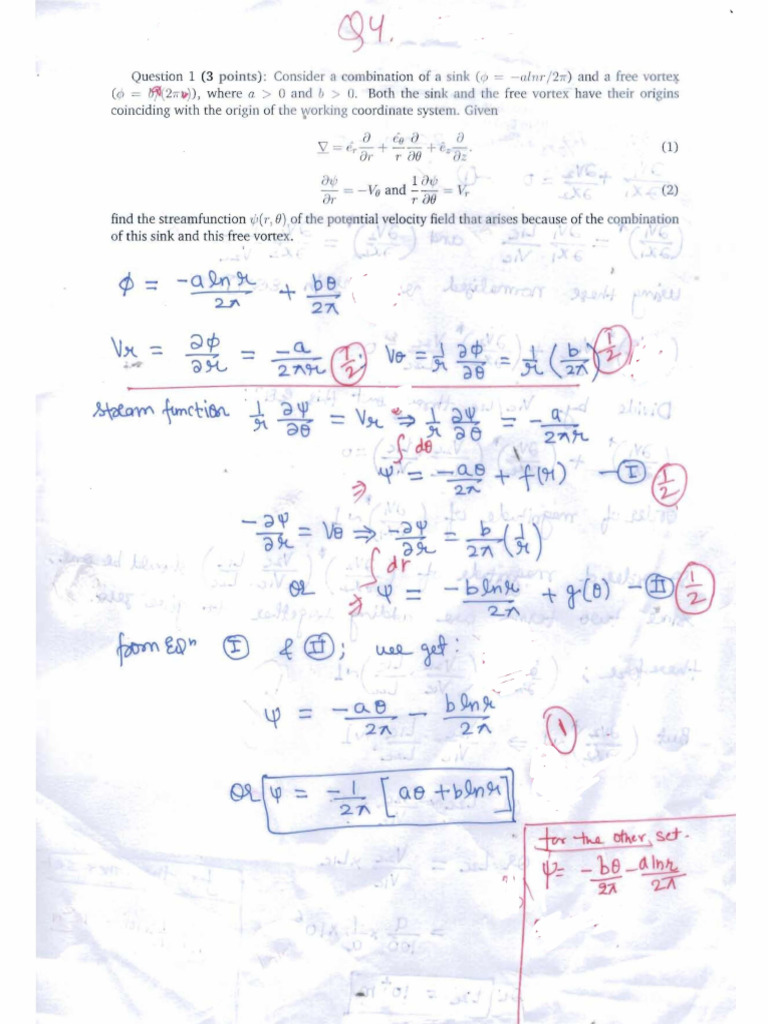 Q4.
Question 1 (3 points): Consider a combination of a sink (ϕ = −alnr/2π) and a free vortex
(ϕ = bθ/(2π)), where a > 0 and b > 0. Both the sink and the free vortex have their origins
coinciding with the origin of the working coordinate system. Given
∇ = ê_r ∂/∂r + ê_θ/r ∂/∂θ + ê_z ∂/∂z. (1)
∂ψ/∂r = −V_θ and 1/r ∂ψ/∂θ = V_r (2)
find the streamfunction ψ(r, θ) of the potential velocity field that arises because of the combination
of this sink and this free vortex.
ϕ = −a ln r/2π + bθ/2π
Vr = ∂ϕ/∂r = −a/2πr (1/2) . Vθ = 1/r ∂ϕ/∂θ = 1/r (b/2π) (1/2)
Stream function 1/r ∂ψ/∂θ = Vr ⇒ 1/r ∂ψ/∂θ = −a/2πr
∫ dθ
⇒ ψ = −aθ/2π + f(r) − I (1/2)
−∂ψ/∂r = Vθ ⇒ −∂ψ/∂r = b/2π (1/r)
∫ dr
or ⇒ ψ = −b ln r/2π + g(θ) − II (1/2)
from EQⁿ I & II; we get:
ψ = −aθ/2π − b ln r/2π (1)
or ψ = −1/2π [aθ + b ln r]
for the other set.
ψ = −bθ/2π − a ln r/2π